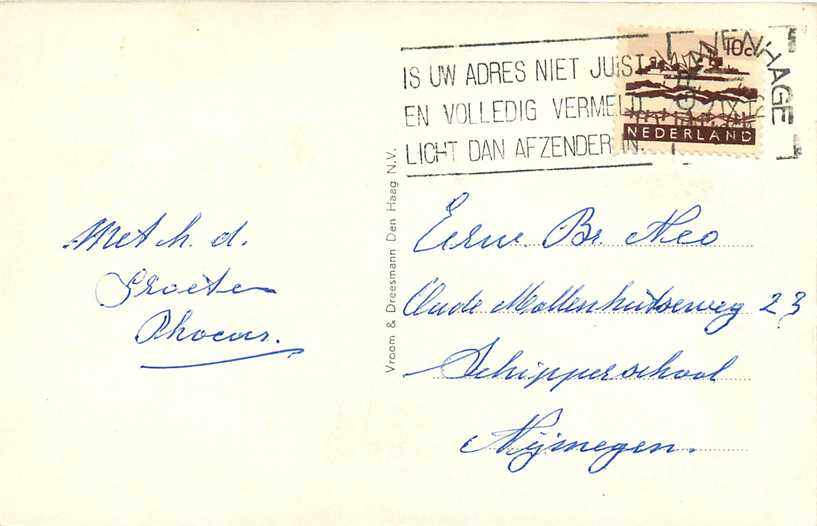 IS UW ADRES NIET JUIST
EN VOLLEDIG VERMELD
LICHT DAN AFZENDER IN.
10c
NEDERLAND
Vroom & Dreesmann Den Haag N.V.
Met h. d.
Groeten
Phocas.
Eerw. Br. Neo
Oude Mollenhutseweg 23
Schipperschool
Nijmegen.